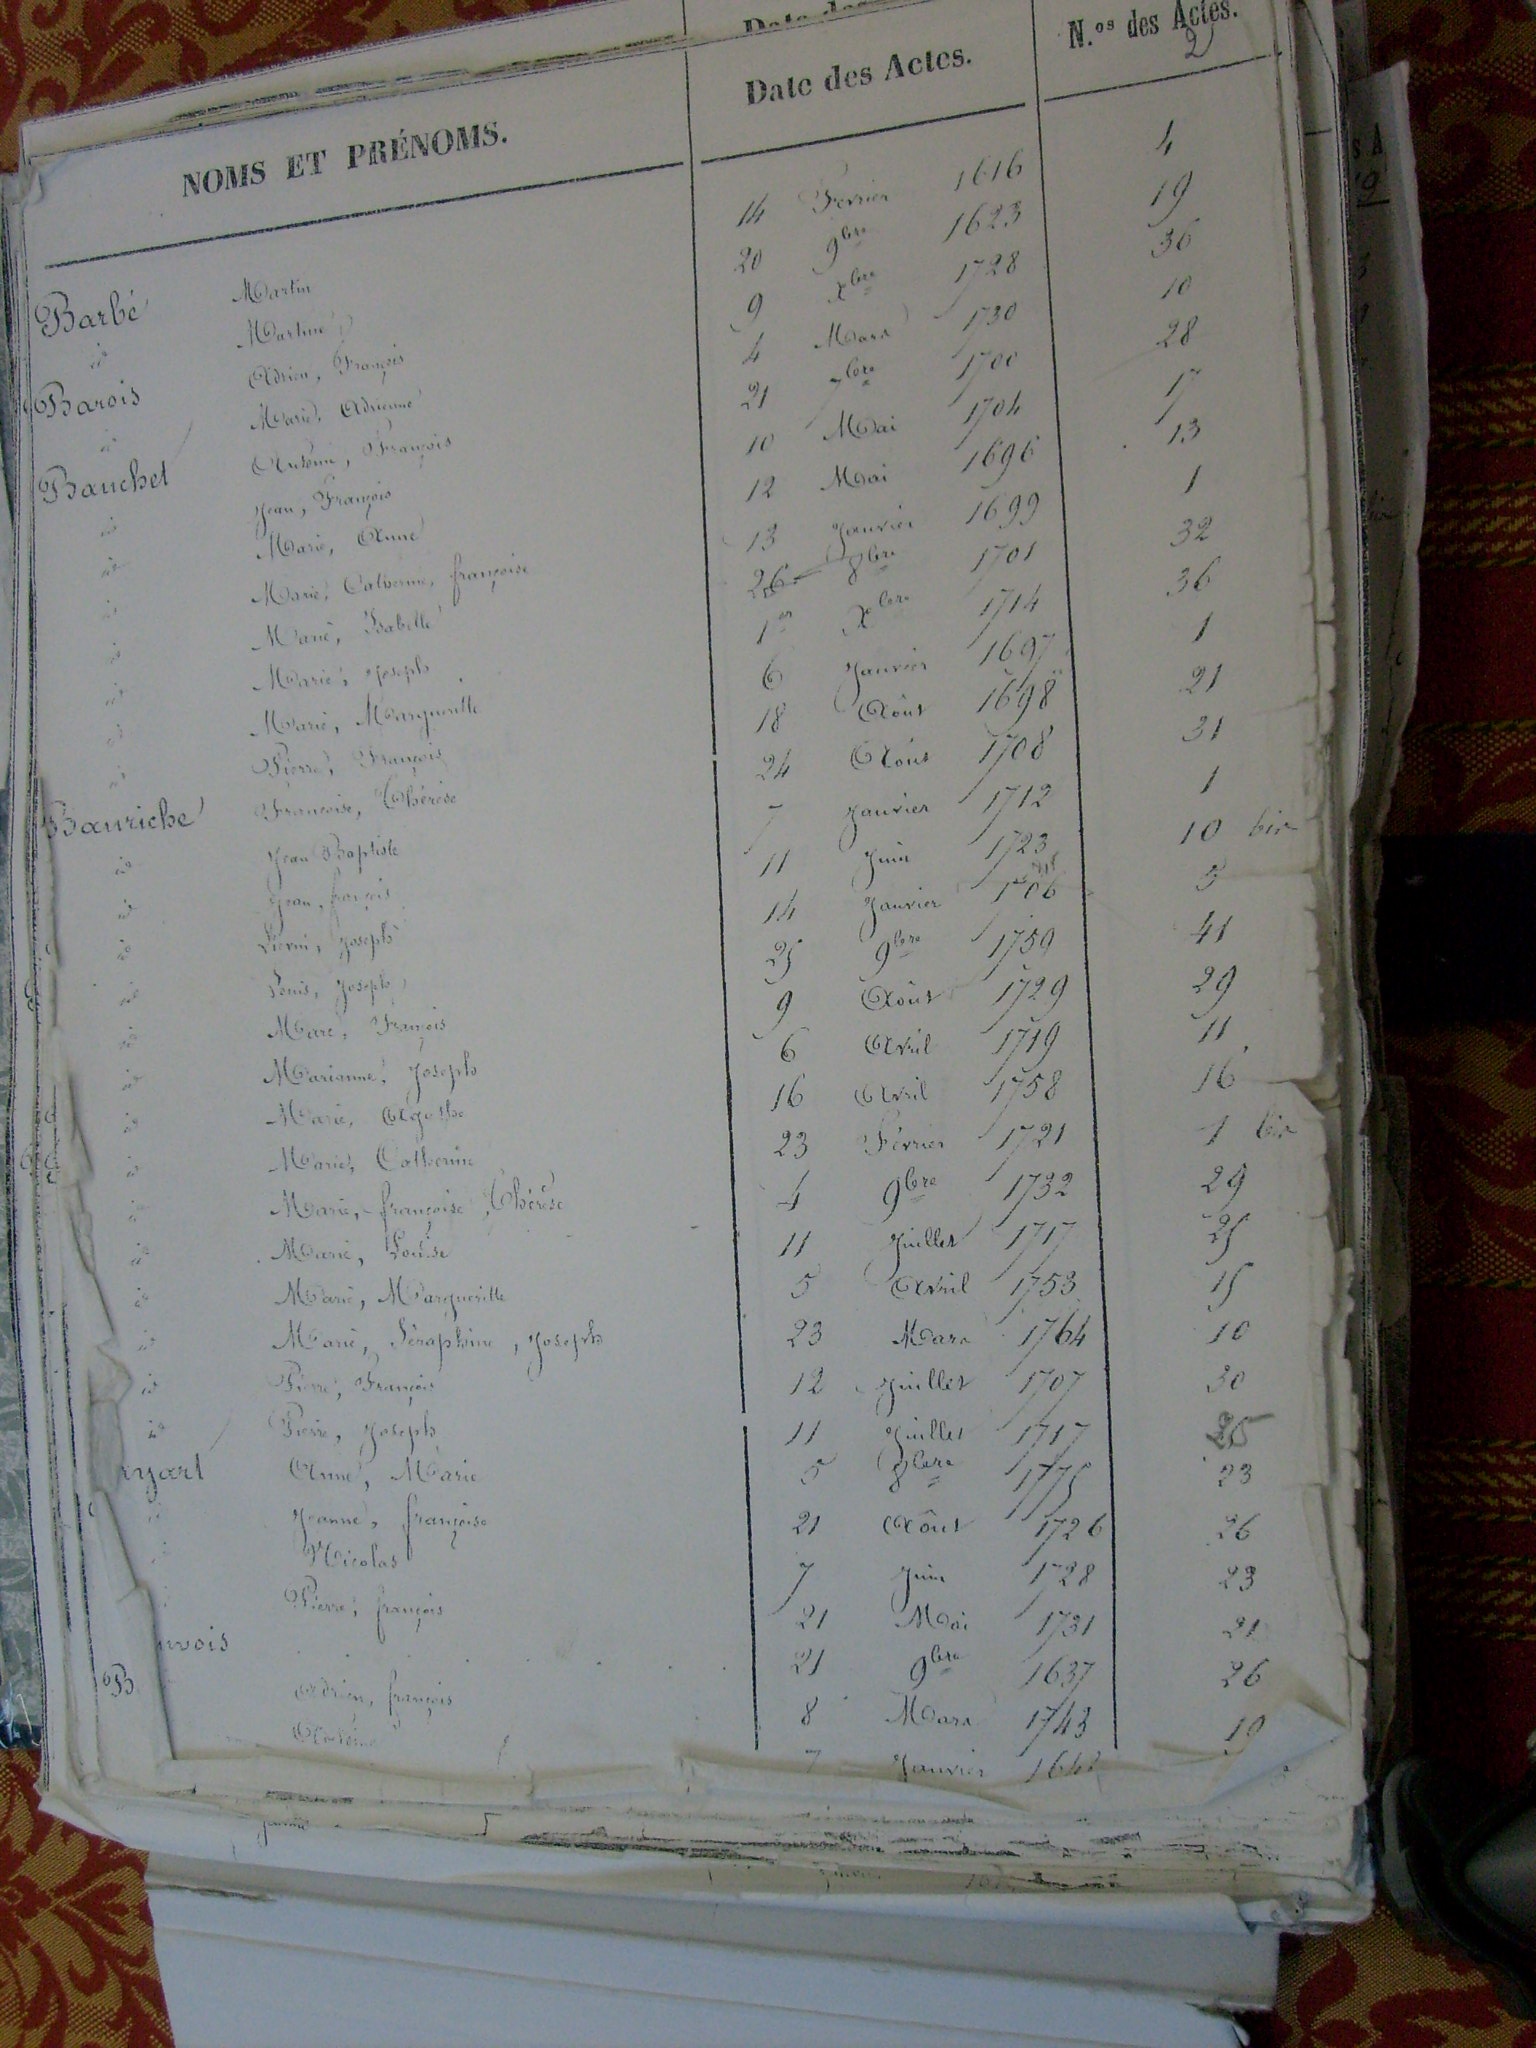 NOMS ET PRÉNOMS. Date des Actes. N.os des Actes.
2
Barbé Martin 14 Février 1616 4
id Martine 20 9bre 1623 19
Barois Adrien, François 9 Xbre 1728 36
id Marie, Adrienne 4 Mars 1730 10
Bauchet Antoine, François 21 7bre 1700 28
id Jean, François 10 Mai 1704 17
id Marie, Anne 12 Mai 1696 13
id Marie, Catherine, françoise 13 Janvier 1699 1
id Marie, Isabelle 26 8bre 1701 32
id Marie, Joseph 1er Xbre 1714 36
id Marie, Marguerite 6 Janvier 1697 1
id Pierre, François 18 Août 1698 21
Bauriche Françoise, Thérèse 24 Août 1708 31
id Jean Baptiste 7 Janvier 1712 1
id Jean, françois 11 Juin 1723 10 bis
id Liévin, Joseph 14 Janvier 1706 5
id Louis, Joseph 25 9bre 1759 41
id Marc, François 9 Août 1729 29
id Marianne, Joseph 6 Avril 1719 11
id Marie, Agathe 16 Avril 1758 16
id Marie, Catherine 23 Février 1721 1 bis
id Marie, françoise, Thérèse 4 9bre 1732 29
id Marie, Louise 11 Juillet 1717 25
id Marie, Marguerite 5 Avril 1753 15
id Marie, Séraphine, Joseph 23 Mars 1764 10
id Pierre, François 12 Juillet 1707 30
id Pierre, Joseph 11 Juillet 1717 25
yart Anne, Marie 5 8bre 1775 23
Jeanne, françoise 21 Août 1726 26
Nicolas 7 Juin 1728 23
Pierre, françois 21 Mai 1731 21
uvois 21 9bre 1637 26
B Adrien, françois 8 Mars 1743 19
Antoine 7 Janvier